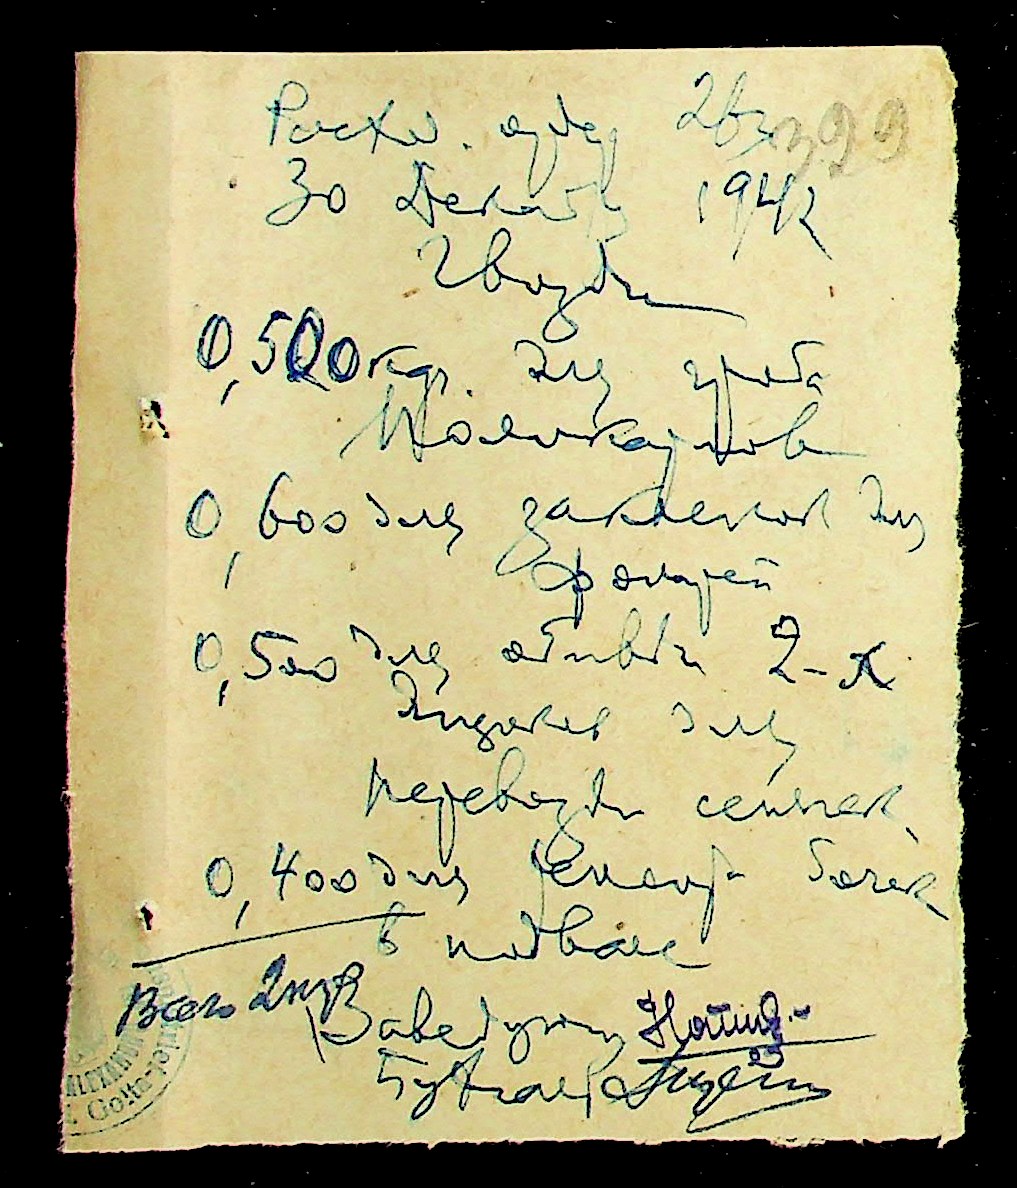 Расход.
399
За Декабрь 1942
Гвозди
0,500 кгр. для гроба
Поликарпов
0,600 для заклепок для
фонарей
0,500 для обивки 2-х
ящиков для
перевозки семячек
0,400 для ремонта бочек
в подвале
Всего 2 кгр
Заведующий
Бухгалтер